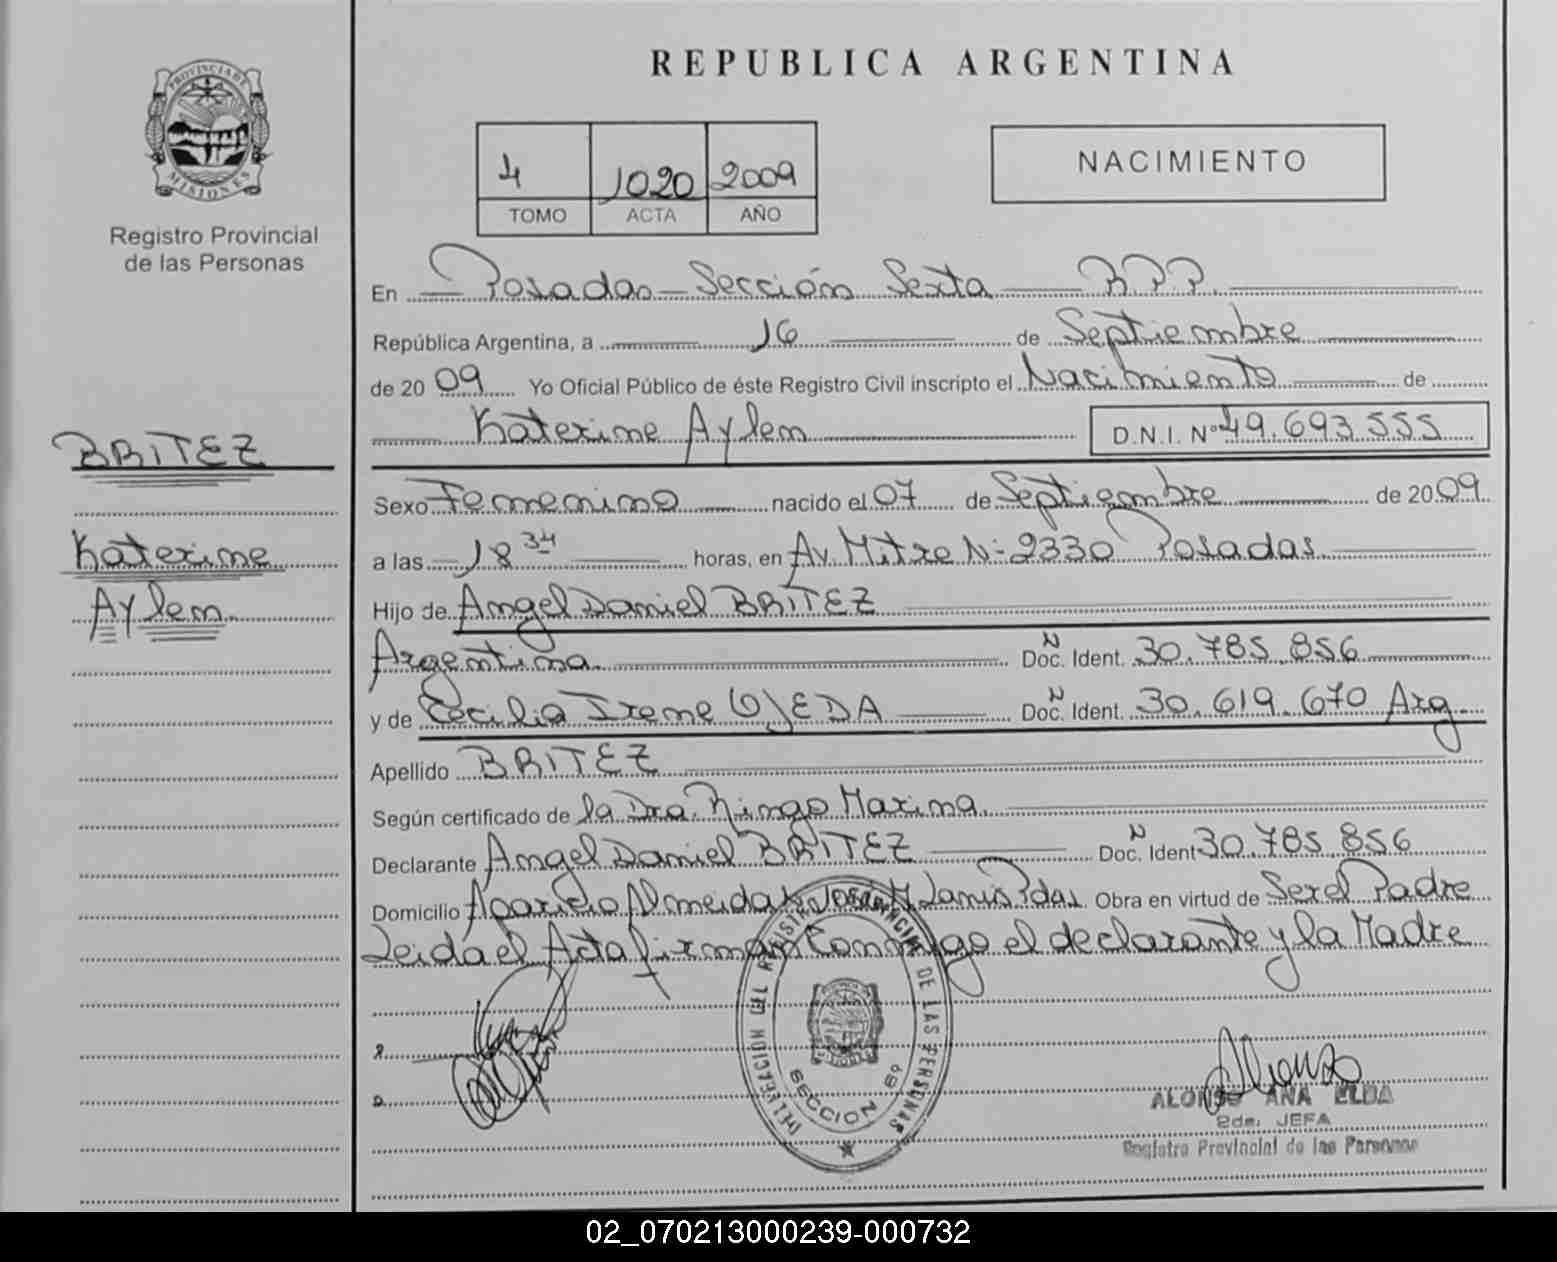 REPUBLICA ARGENTINA
PROVINCIA DE MISIONES
Registro Provincial
de las Personas
4 1020 2009
TOMO ACTA AÑO
NACIMIENTO
En Posadas - Sección Sexta R.P.P.
República Argentina, a 16 de Septiembre
de 2009 Yo Oficial Público de éste Registro Civil inscripto el Nacimiento de
Katerine Aylen D.N.I. Nº 49.693.555
BRITEZ
Katerine
Aylen
Sexo Femenino nacido el 07 de Septiembre de 2009
a las 18 34 horas, en Av. Mitre Nº 2330 Posadas
Hijo de Angel Daniel BRITEZ
Argentina Doc. Ident. N 30.785.856
y de Cecilia Irene OJEDA Doc. Ident. N 30.619.670 Arg
Apellido BRITEZ
Según certificado de la Dra. Ringo Marina
Declarante Angel Daniel BRITEZ Doc. Ident N 30.785.856
Domicilio Aparicio Almeida Obra en virtud de Ser el Padre
Leida el Acta firman Conmigo el declarante y la Madre
DELEGACION DEL REGISTRO PROVINCIAL DE LAS PERSONAS
SECCION 6º
ALONSO ANA ELBA
2da. JEFA
Registro Provincial de las Personas
02_070213000239-000732